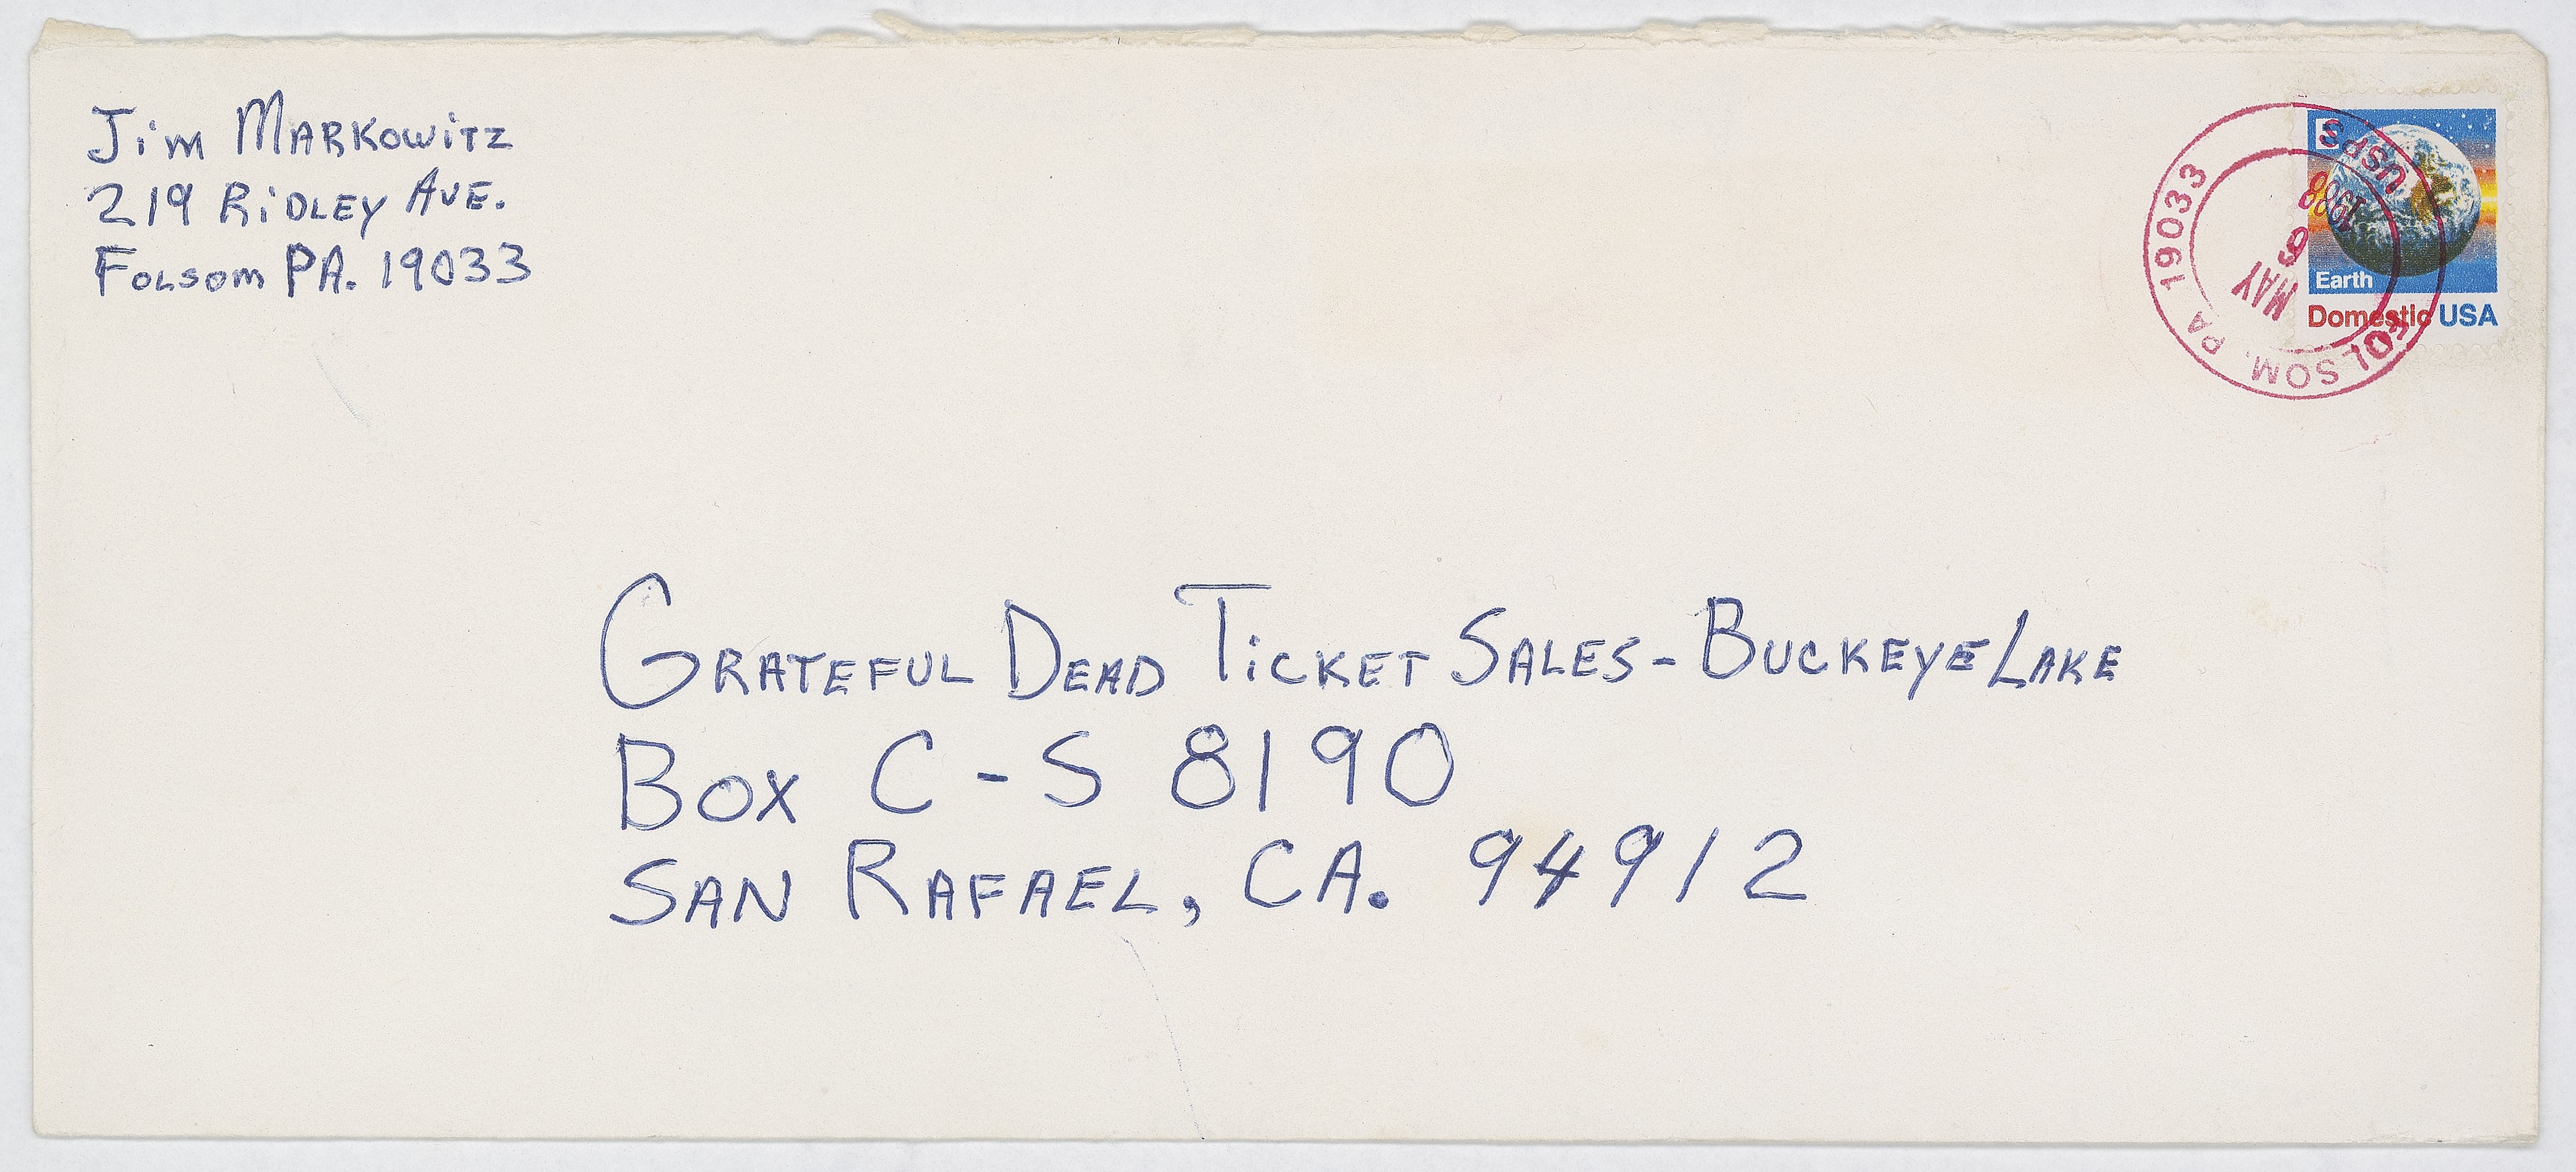 Jim MARKOWiTZ
219 RiDLEY AVE.
FOLSOM PA. 19033
E
Earth
Domestic USA
FOLSOM, PA 19033
USPS
MAY
1988
GRATEFUL DEAD TiCKET SALES-BUCKEYE LAKE
BOX C-S 8190
SAN RAFAEL, CA. 94912